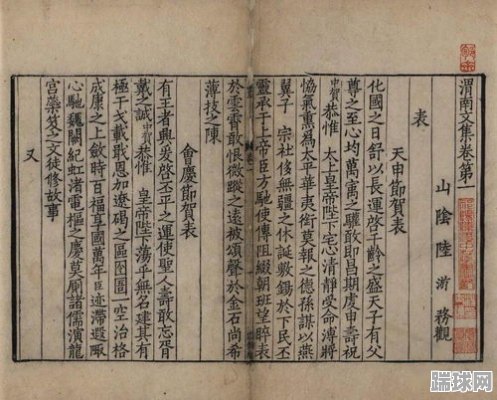 渭南文集卷第一
山陰陸 游 務觀
表
天申節賀表
化國之日舒以長運啓千齡之盛天子有父
尊之至心均萬寓之驩敢即昌期虔申壽祝
中賀恭惟 太上皇帝陛下宅心清靜受命溥將
協氣熏為太平華夷銜莫報之德孫謀以燕
翼子 宗社侈無疆之休誕敷錫於下民丕
靈承于上帝臣方馳使傳阻綴朝班望睟表
於雲霄敢恨微蹤之遠被頌聲於金石尚希
薄技之陳
會慶節賀表
有王者興爰啓丕平之運使聖人壽敢忘胥
戴之誠中賀恭惟 皇帝陛下蕩乎無名建其有
極干戈載戢恩加遼碣之區囹圄一空治格
成康之上斂時百福享國萬年臣迹滯遐陬
心馳魏闕紀虹渚電樞之慶莫厠諸儒演龍
宮藥笈之文徒修故事
又
踹球网